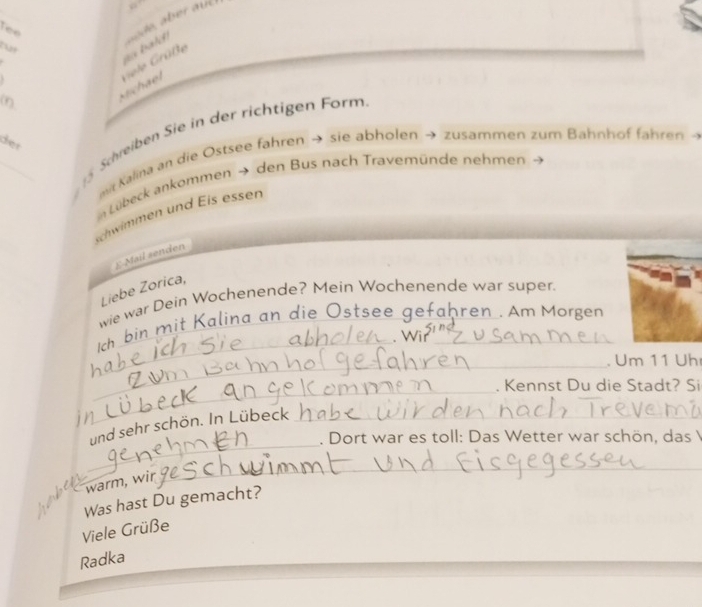 mode, aber auch
Bis bald!
Viele Grüße
Michael
15 Schreiben Sie in der richtigen Form.
mit Kalina an die Ostsee fahren → sie abholen → zusammen zum Bahnhof fahren →
in Lübeck ankommen → den Bus nach Travemünde nehmen →
schwimmen und Eis essen
E-Mail senden
Liebe Zorica,
wie war Dein Wochenende? Mein Wochenende war super.
Ich bin mit Kalina an die Ostsee gefahren. Am Morgen
habe ich Sie abholen. Wir sind zusammen
zum Bahnhof gefahren. Um 11 Uhr
in Lübeck angekommen. Kennst Du die Stadt? Si
und sehr schön. In Lübeck habe wir den nach Trevemü
genehmen. Dort war es toll: Das Wetter war schön, das
haben warm, wir geschwimmt und Eisgegessen
Was hast Du gemacht?
Viele Grüße
Radka